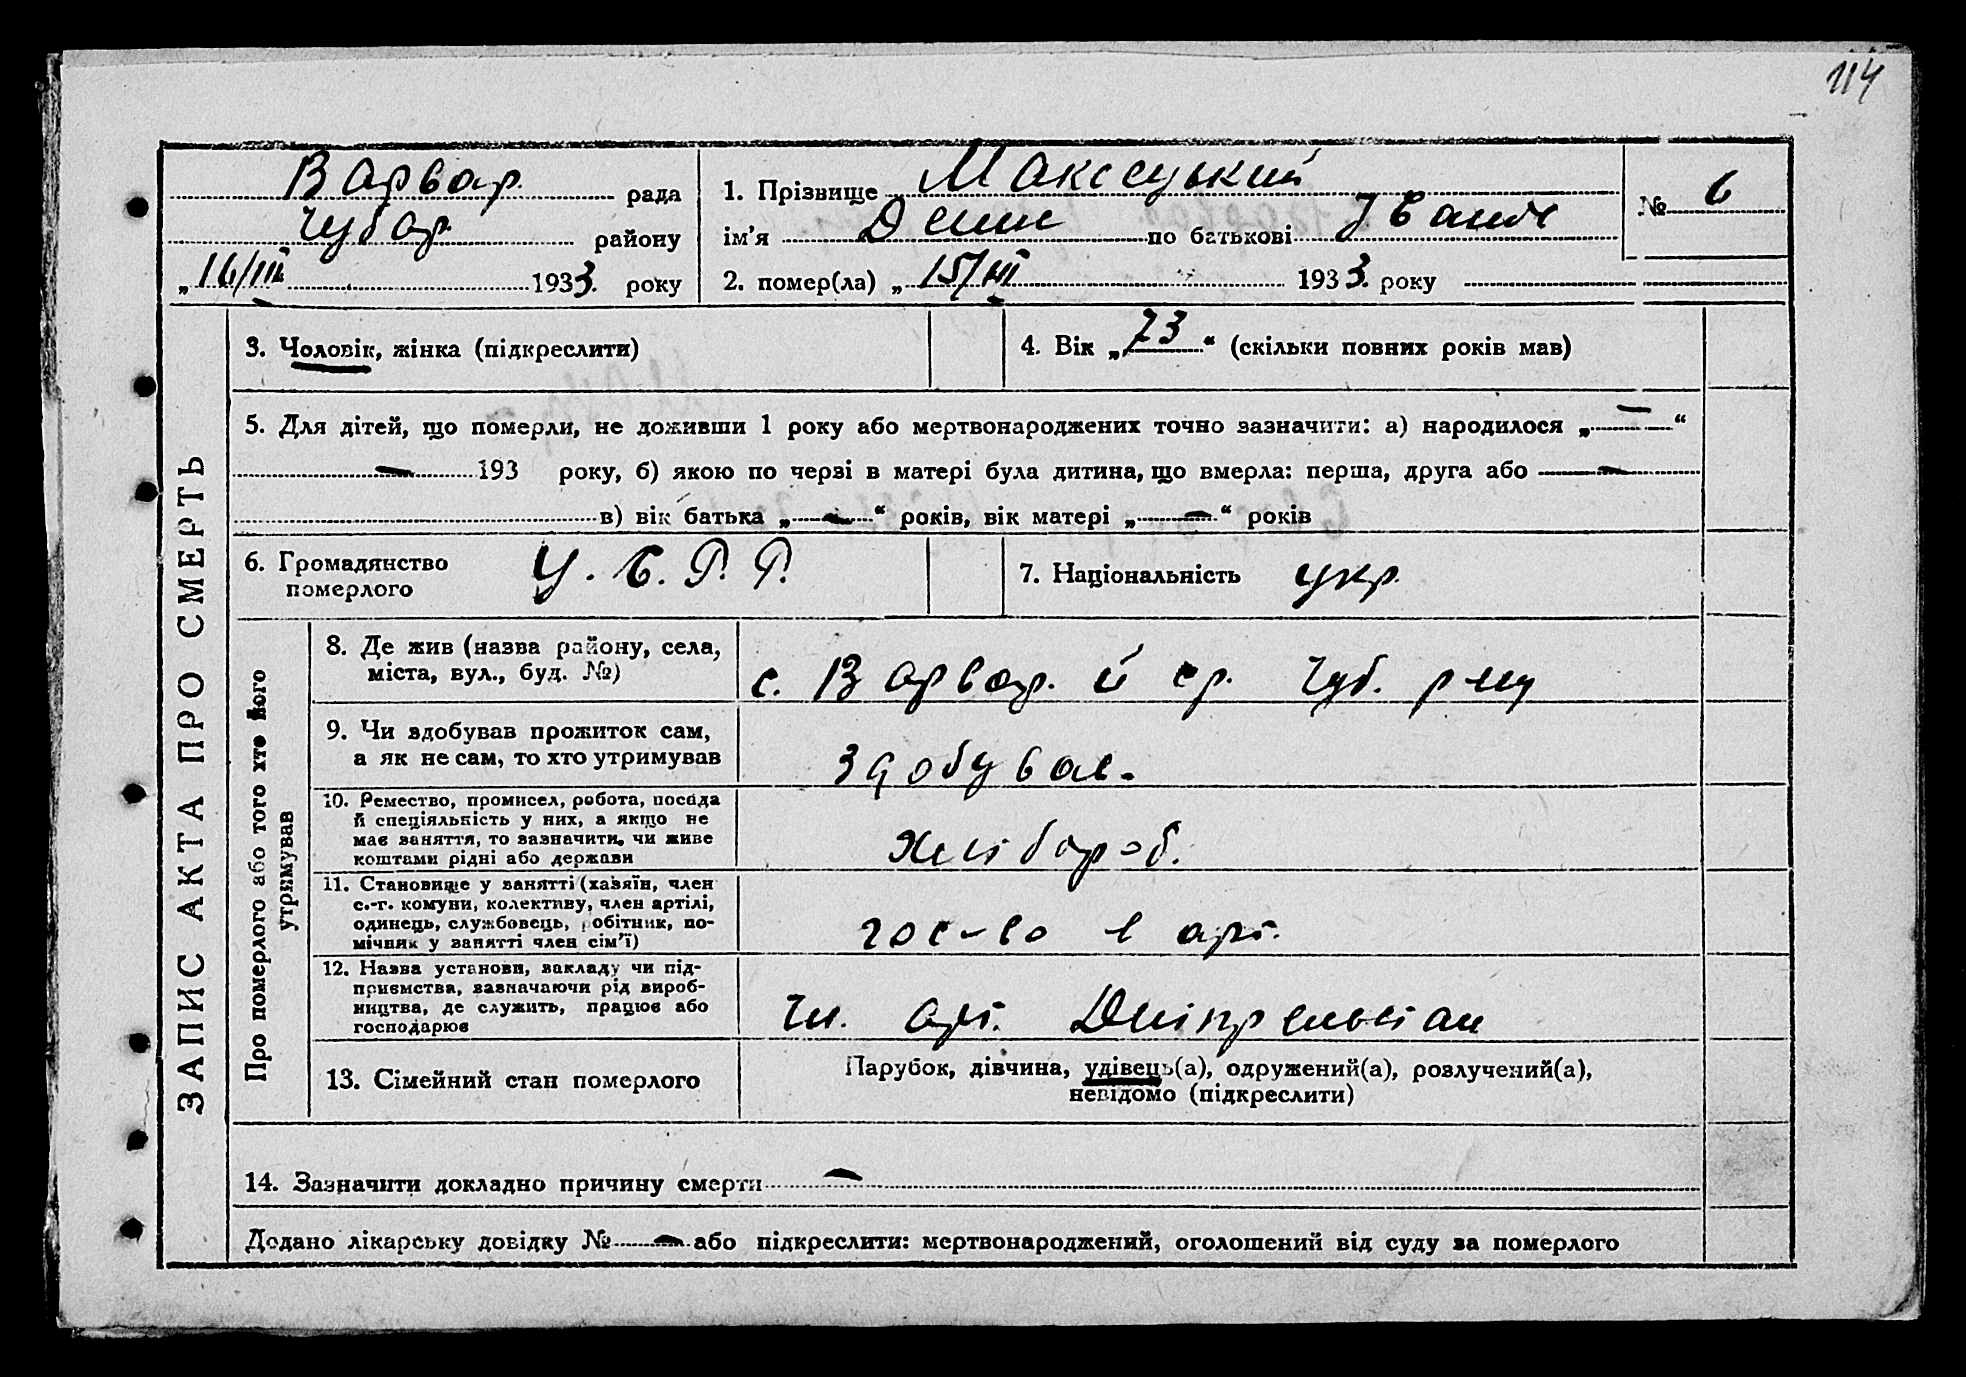 114
Варвар. рада
Чубар. району
„16/III 1933. року
1. Прізвище
ім’я Демян по батькові Іванов
2. помер(ла) „15/III 1933. року
№ 6
ЗАПИС АКТА ПРО СМЕРТЬ
3. Чоловік, жінка (підкреслити)
4. Вік „73“ (скільки повних років мав)
5. Для дітей, що померли, не доживши 1 року або мертвонароджених точно зазначити: а) народилося „—“
— 193 року, б) якою по черзі в матері була дитина, що вмерла: перша, друга або —
в) вік батька „—“ років, вік матері „—“ років
6. Громадянство
померлого
У. С. Р. Р.
7. Національність укр.
Про померлого або того хто його
утримував
8. Де жив (назва району, села,
міста, вул., буд. №)
с. Варвар. Чуб. р-ну
9. Чи здобував прожиток сам,
а як не сам, то хто утримував
здобував.
10. Ремество, промисел, робота, посада
й спеціяльність у них, а якщо не
має заняття, то зазначити, чи живе
коштами рідні або держави
хлібороб.
11. Становище у занятті (хазяїн, член
с.-г. комуни, колективу, член артілі,
одинець, службовець, робітник, по-
мічник у занятті член сім’ї)
гос-во в арт.
12. Назва установи, закладу чи під-
приємства, зазначаючи рід вироб-
ництва, де служить, працює або
господарює
Чл. арт. Дніпрельстан
13. Сімейний стан померлого
Парубок, дівчина, удівець(а), одружений(а), розлучений(а),
невідомо (підкреслити)
14. Зазначити докладно причину смерти —
Додано лікарську довідку № — або підкреслити: мертвонароджений, оголошений від суду за померлого